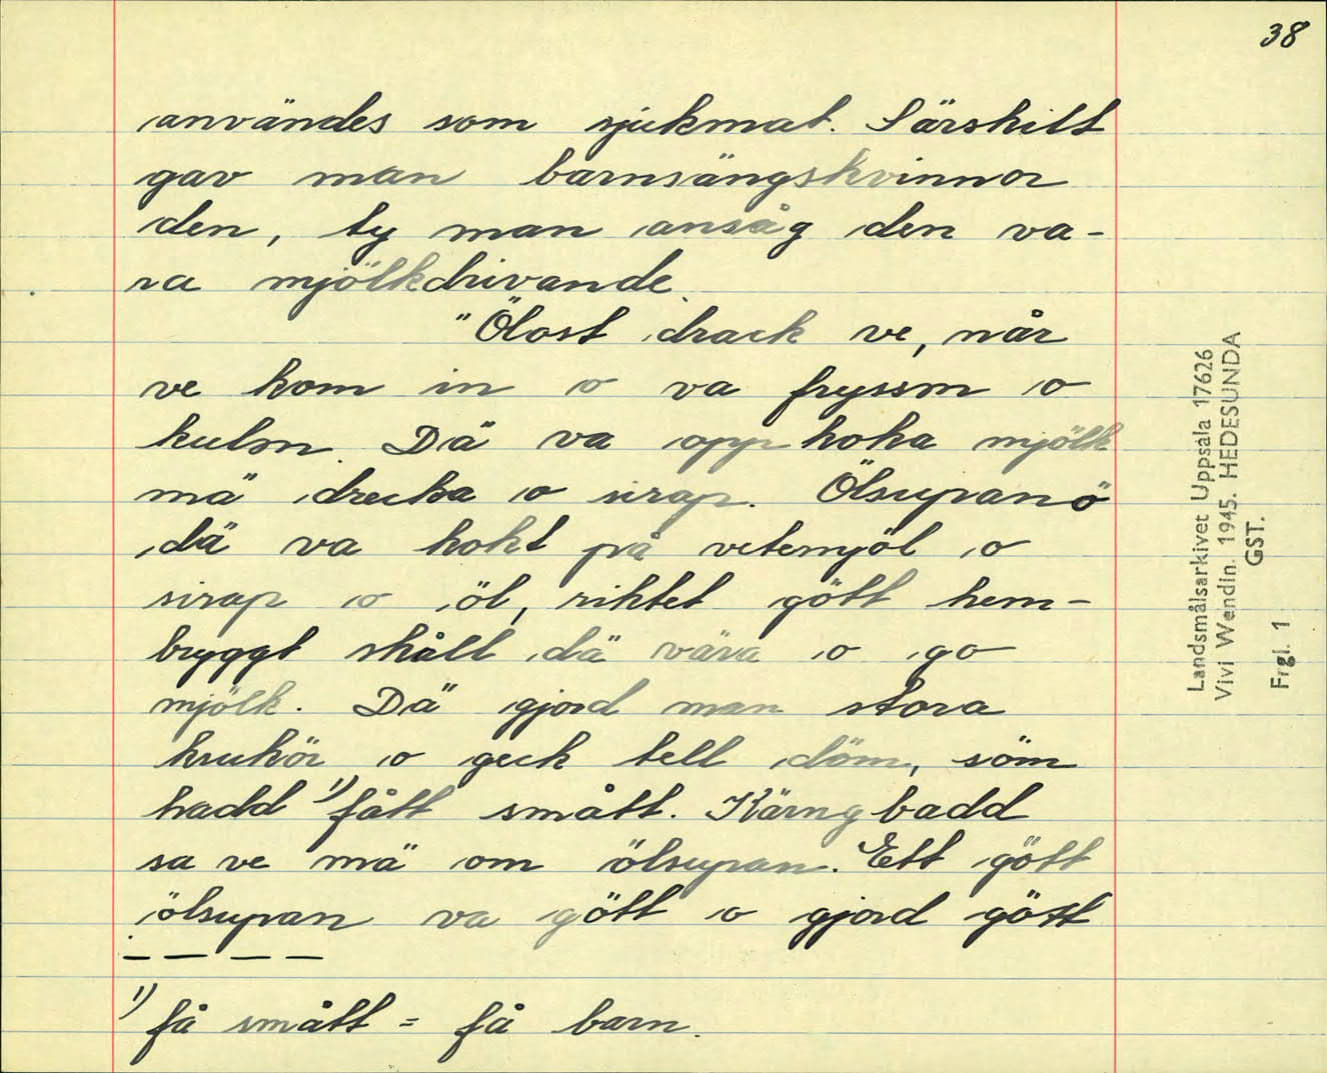 38
användes som sjukmat. Särskilt
gav man barnsängskvinnor
den, ty man ansåg den va-
ra mjölkdrivande.
"Ölost drack ve, når
ve kom in o va fryssm o
kulsn. Dä va opp koka mjölk
mä drecka o sirap. Ölsupanö
dä va kokt på vetemjöl o
sirap o öl, riktet gött hem-
bryggt skåll dä våra o go
mjölk. Dä gjord man stora
krukör o geck tell döm, söm
hadd 1) fått smått. Kärng badd
sa ve mä om ölsupan. Ett gött
ölsupan va gött o gjord gött
1) få smått = få barn.
Landsmålsarkivet Uppsala 17626
Vivi Wendin. 1945. HEDESUNDA
GST.
Frgl. 1